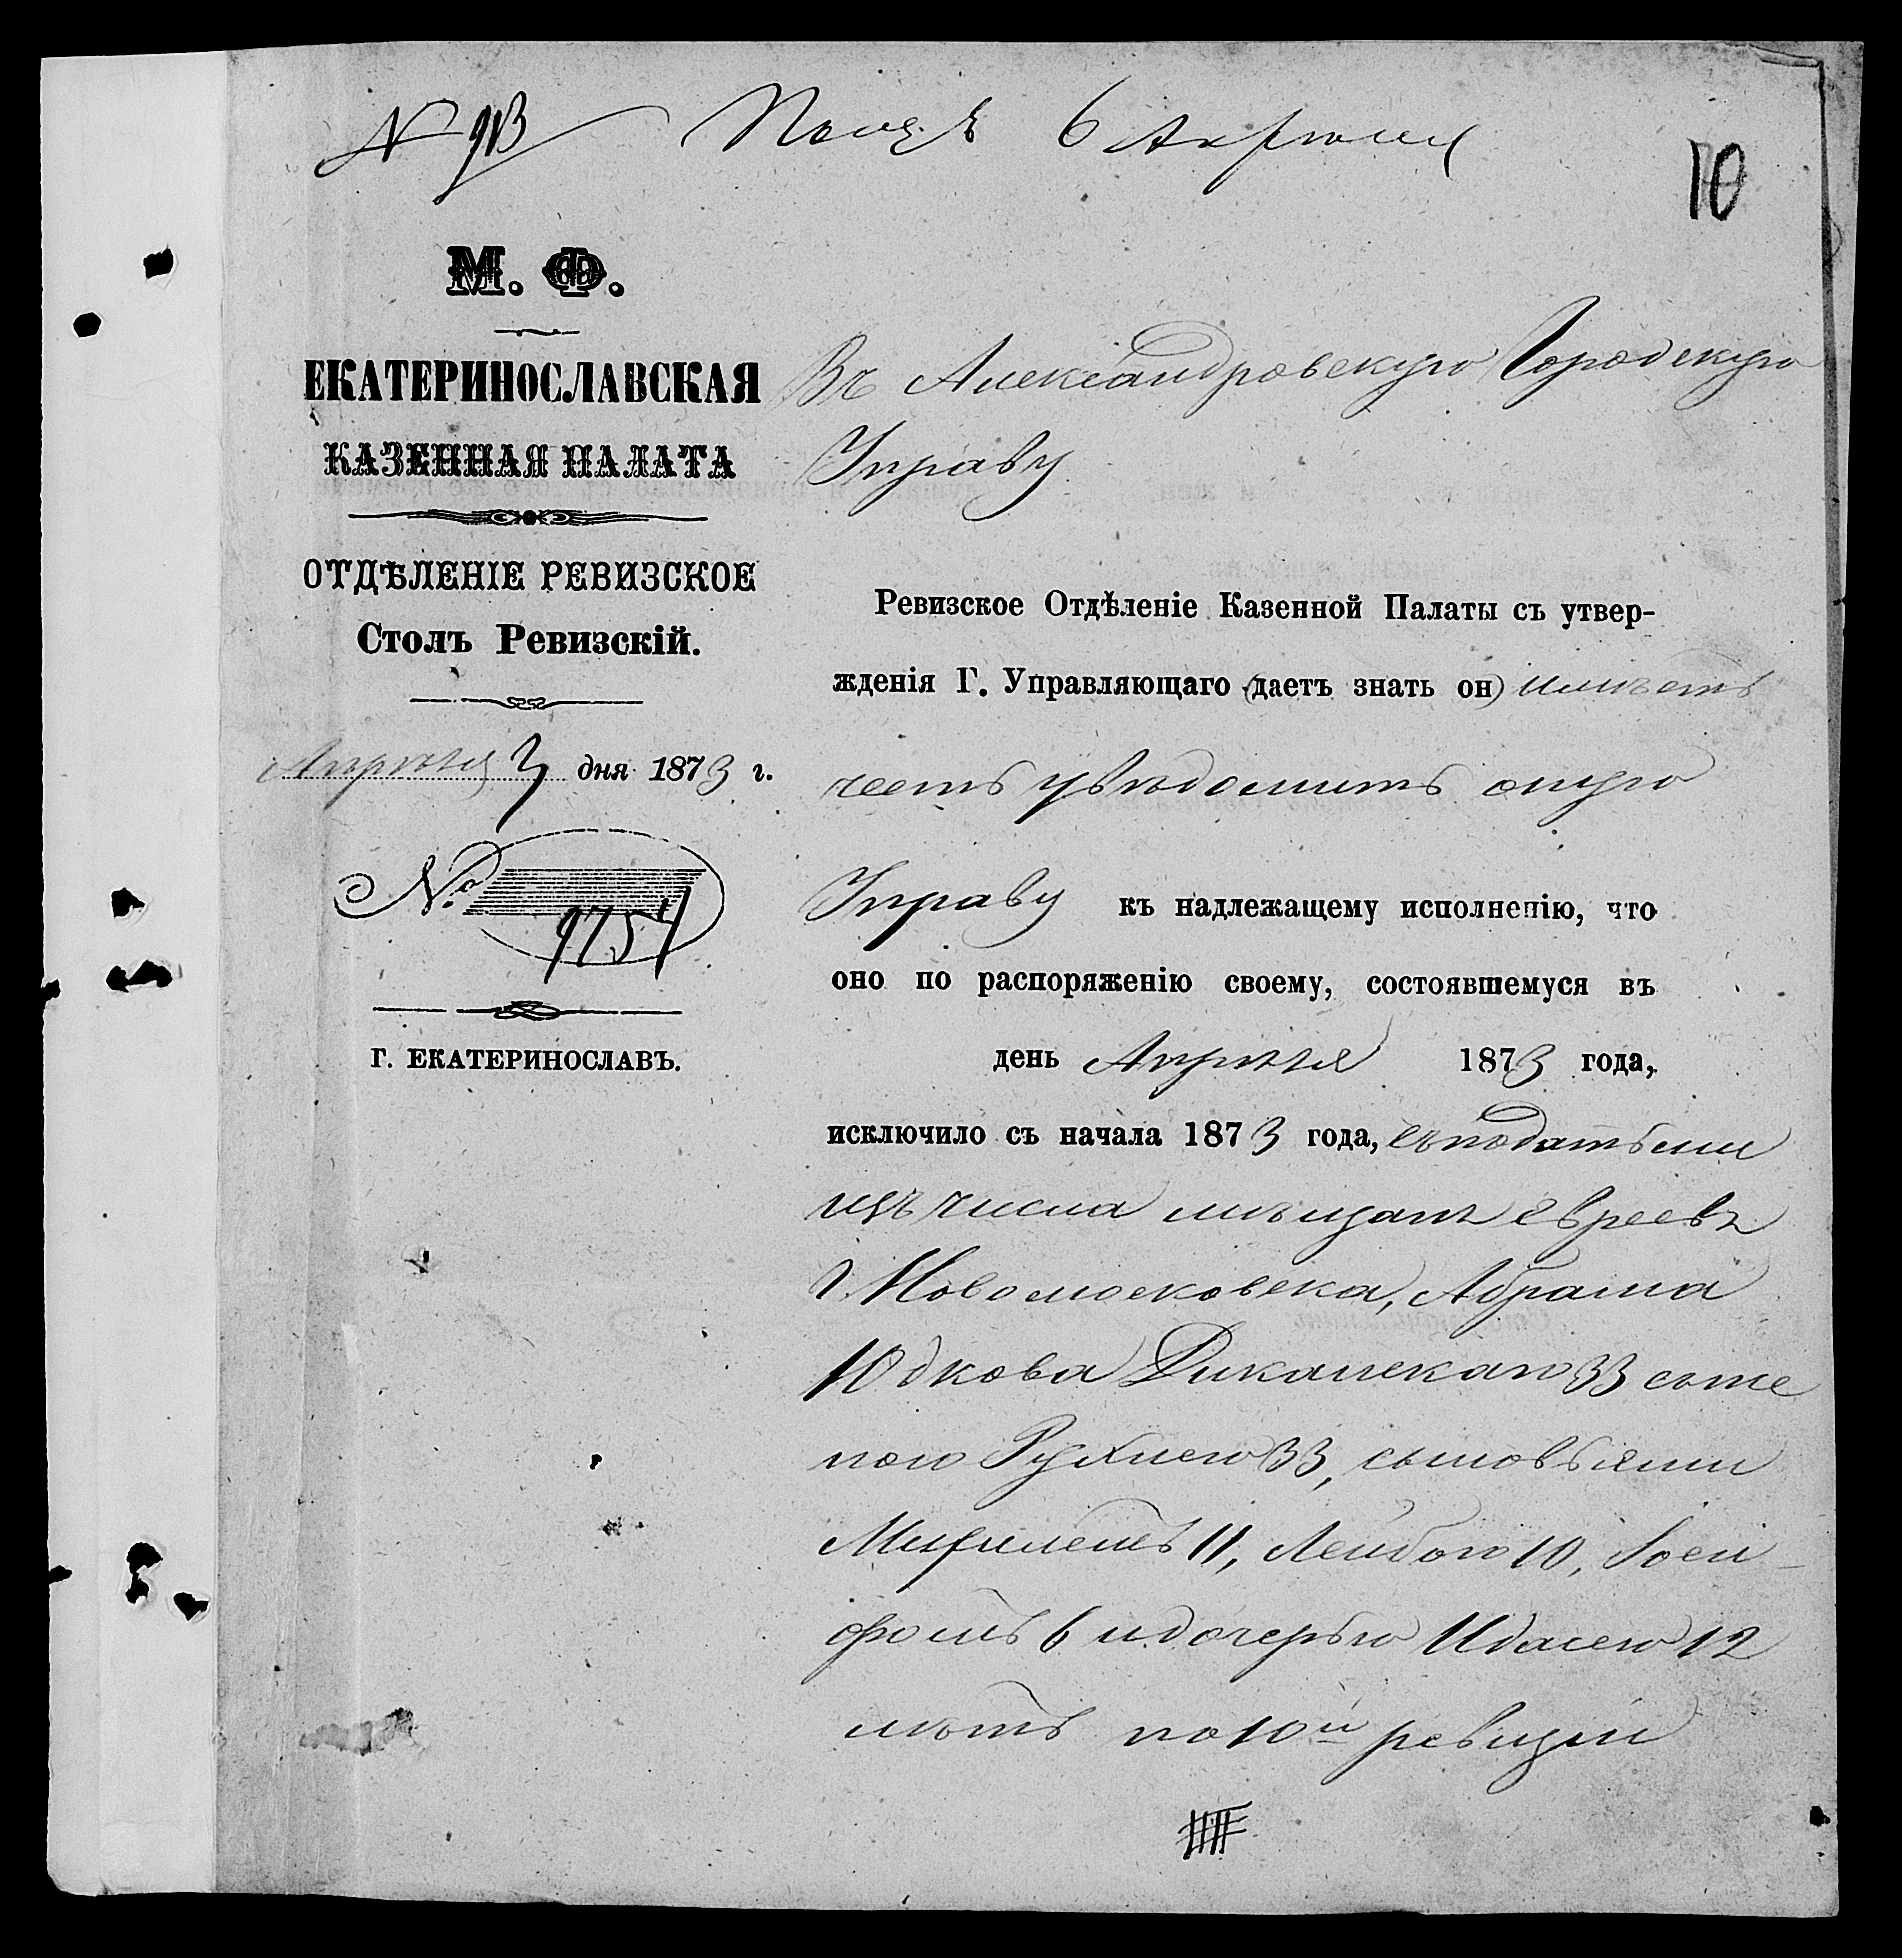 № 913 Получ. 6 Апрѣля
10
М. Ф.
ЕКАТЕРИНОСЛАВСКАЯ
КАЗЕННАЯ ПАЛАТА
ОТДѢЛЕНІЕ РЕВИЗСКОЕ
Столъ Ревизскій.
Апрѣля 3 дня 1873 г.
№ 9754
Г. ЕКАТЕРИНОСЛАВЪ.
Въ Александровскую Городскую
Управу
Ревизское Отдѣленіе Казенной Палаты съ утвер-
жденія Г. Управляющаго (даетъ знать он) имѣетъ
честь увѣдомить оную
Управу къ надлежащему исполненію, что
оно по распоряженію своему, состоявшемуся въ
день Апрѣля 1873 года,
исключило съ начала 1873 года, съ податьми
изъ числа мѣщанъ евреевъ
г. Новомосковска, Абрама
Юдкова Диканскаго 33 съ же
ною Рухлею 33, сыновьями
11, Лейбою 10, Іоси-
фомъ 6 и дочерью Идасею 12
лѣтъ по 10й ревизіи